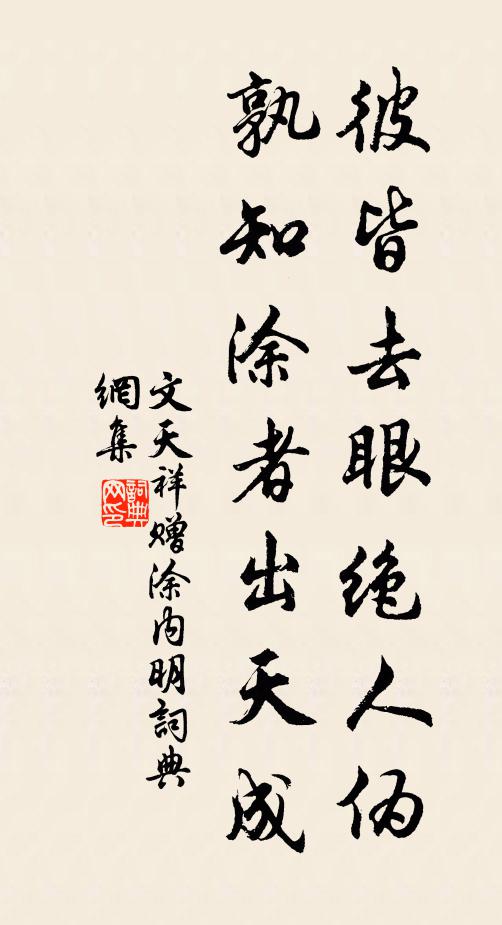 彼皆去眼绝人伪
孰知涂者出天成
文天祥赠涂内明詞典
網集
詞典
网印